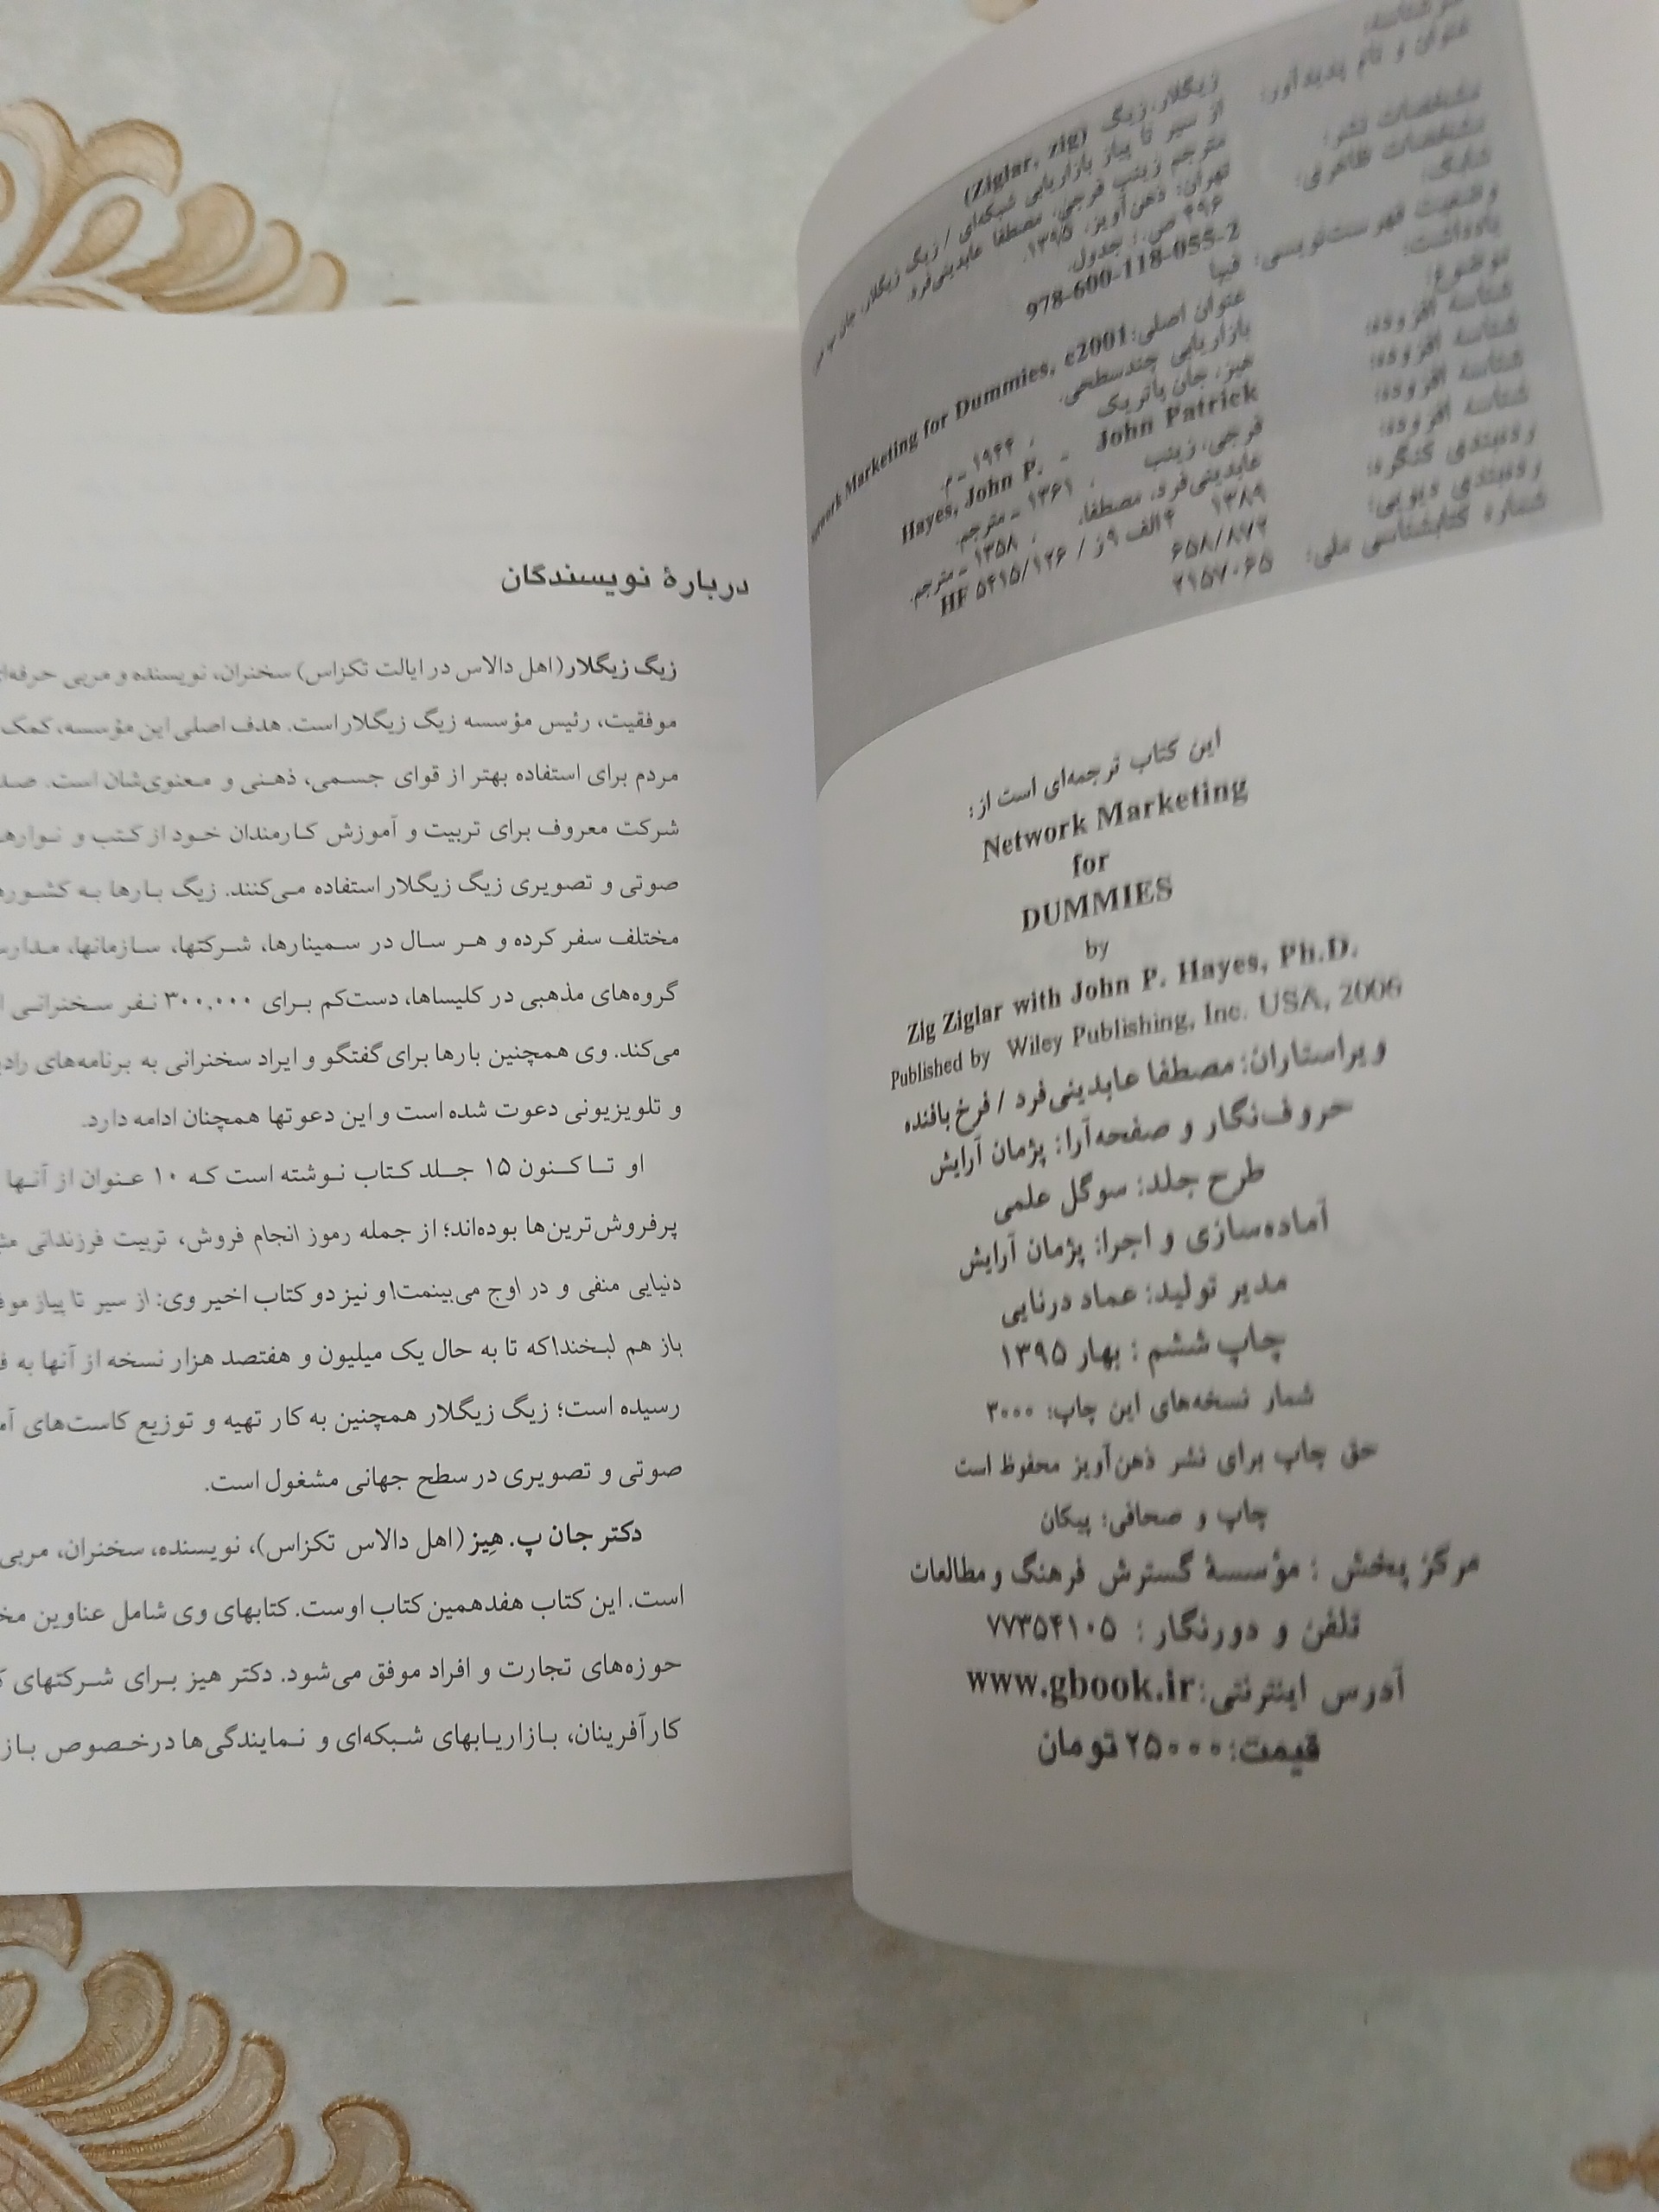 زیگلار، زیگ (Ziglar, zig)
عنوان و نام پدیدآور: از سیر تا پیاز بازاریابی شبکه‌ای / زیگ زیگلار، جان
مترجم زینب فرجی، مصطفا عابدینی‌فرد.
مشخصات نشر: تهران: ذهن‌آویز، ۱۳۹۵.
مشخصات ظاهری: ۴۹۶ ص.: جدول.
شابک: 978-600-118-055-2
وضعیت فهرست‌نویسی: فیپا
یادداشت: عنوان اصلی: Network Marketing for Dummies, c2001
موضوع: بازاریابی چندسطحی.
شناسه افزوده: هیز، جان پاتریک، ۱۹۴۴ - م.
شناسه افزوده: Hayes, John P. - John Patrick
شناسه افزوده: فرجی، زینب، ۱۳۶۱ - مترجم.
شناسه افزوده: عابدینی‌فرد، مصطفا، ۱۳۵۸ - مترجم.
رده‌بندی کنگره: ۱۳۸۹ ۴الف ۹ز / HF ۵۴۱۵/۱۲۶
رده‌بندی دیویی: ۶۵۸/۸۷۲
شماره کتابشناسی ملی: ۲۱۵۷۰۶۵
این کتاب ترجمه‌ای است از:
Network Marketing
for
DUMMIES
by
Zig Ziglar with John P. Hayes, Ph.D.
Published by Wiley Publishing, Inc. USA, 2006
ویراستاران: مصطفا عابدینی‌فرد / فرخ بافنده
حروف‌نگار و صفحه‌آرا: پژمان آرایش
طرح جلد: سوگل علمی
آماده‌سازی و اجرا: پژمان آرایش
مدیر تولید: عماد درنایی
چاپ ششم : بهار ۱۳۹۵
شمار نسخه‌های این چاپ: ۳۰۰۰
حق چاپ برای نشر ذهن‌آویز محفوظ است
چاپ و صحافی: پیکان
مرکز پخش : مؤسسهٔ گسترش فرهنگ و مطالعات
تلفن و دورنگار : ۷۷۳۵۴۱۰۵
آدرس اینترنتی: www.gbook.ir
قیمت: ۲۵۰۰۰ تومان
دربارهٔ نویسندگان
زیگ زیگلار (اهل دالاس در ایالت تکزاس) سخنران، نویسنده و مربی
موفقیت، رئیس مؤسسه زیگ زیگلار است. هدف اصلی این مؤسسه، کمک
مردم برای استفاده بهتر از قوای جسمی، ذهنی و معنوی‌شان است.
شرکت معروف برای تربیت و آموزش کارمندان خود از کتب و
صوتی و تصویری زیگ زیگلار استفاده می‌کنند. زیگ بارها به
مختلف سفر کرده و هر سال در سمینارها، شرکتها، سازمانها،
گروه‌های مذهبی در کلیساها، دست‌کم برای ۳۰۰,۰۰۰ نفر سخنرانی
می‌کند. وی همچنین بارها برای گفتگو و ایراد سخنرانی به برنامه‌های
و تلویزیونی دعوت شده است و این دعوتها همچنان ادامه دارد.
او تاکنون ۱۵ جلد کتاب نوشته است که ۱۰ عنوان از آنها
پرفروش‌ترین‌ها بوده‌اند؛ از جمله رموز انجام فروش، تربیت فرزندانی
دنیایی منفی و در اوج می‌بینمت! و نیز دو کتاب اخیر وی: از سیر تا پیاز
باز هم لبخند! که تا به حال یک میلیون و هفتصد هزار نسخه از آنها به
رسیده است؛ زیگ زیگلار همچنین به کار تهیه و توزیع کاست‌های
صوتی و تصویری در سطح جهانی مشغول است.
دکتر جان پ. هِیز (اهل دالاس تکزاس)، نویسنده، سخنران، مربی
است. این کتاب هفدهمین کتاب اوست. کتابهای وی شامل عناوین
حوزه‌های تجارت و افراد موفق می‌شود. دکتر هیز برای شرکتهای
کارآفرینان، بازاریابهای شبکه‌ای و نمایندگی‌ها درخصوص